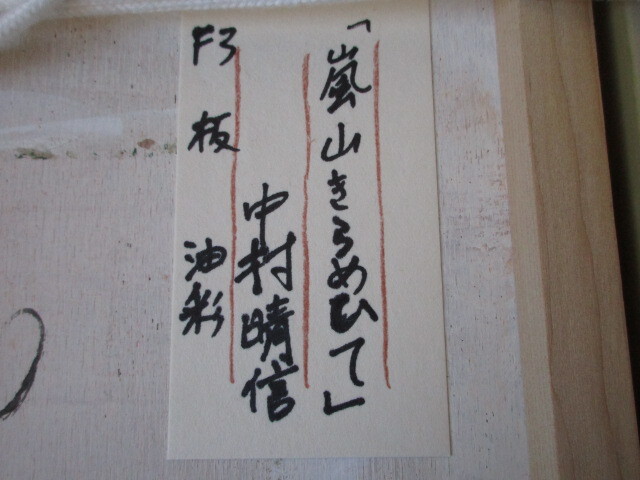 「嵐山きらめいて」
中村晴信
F3 板 油彩